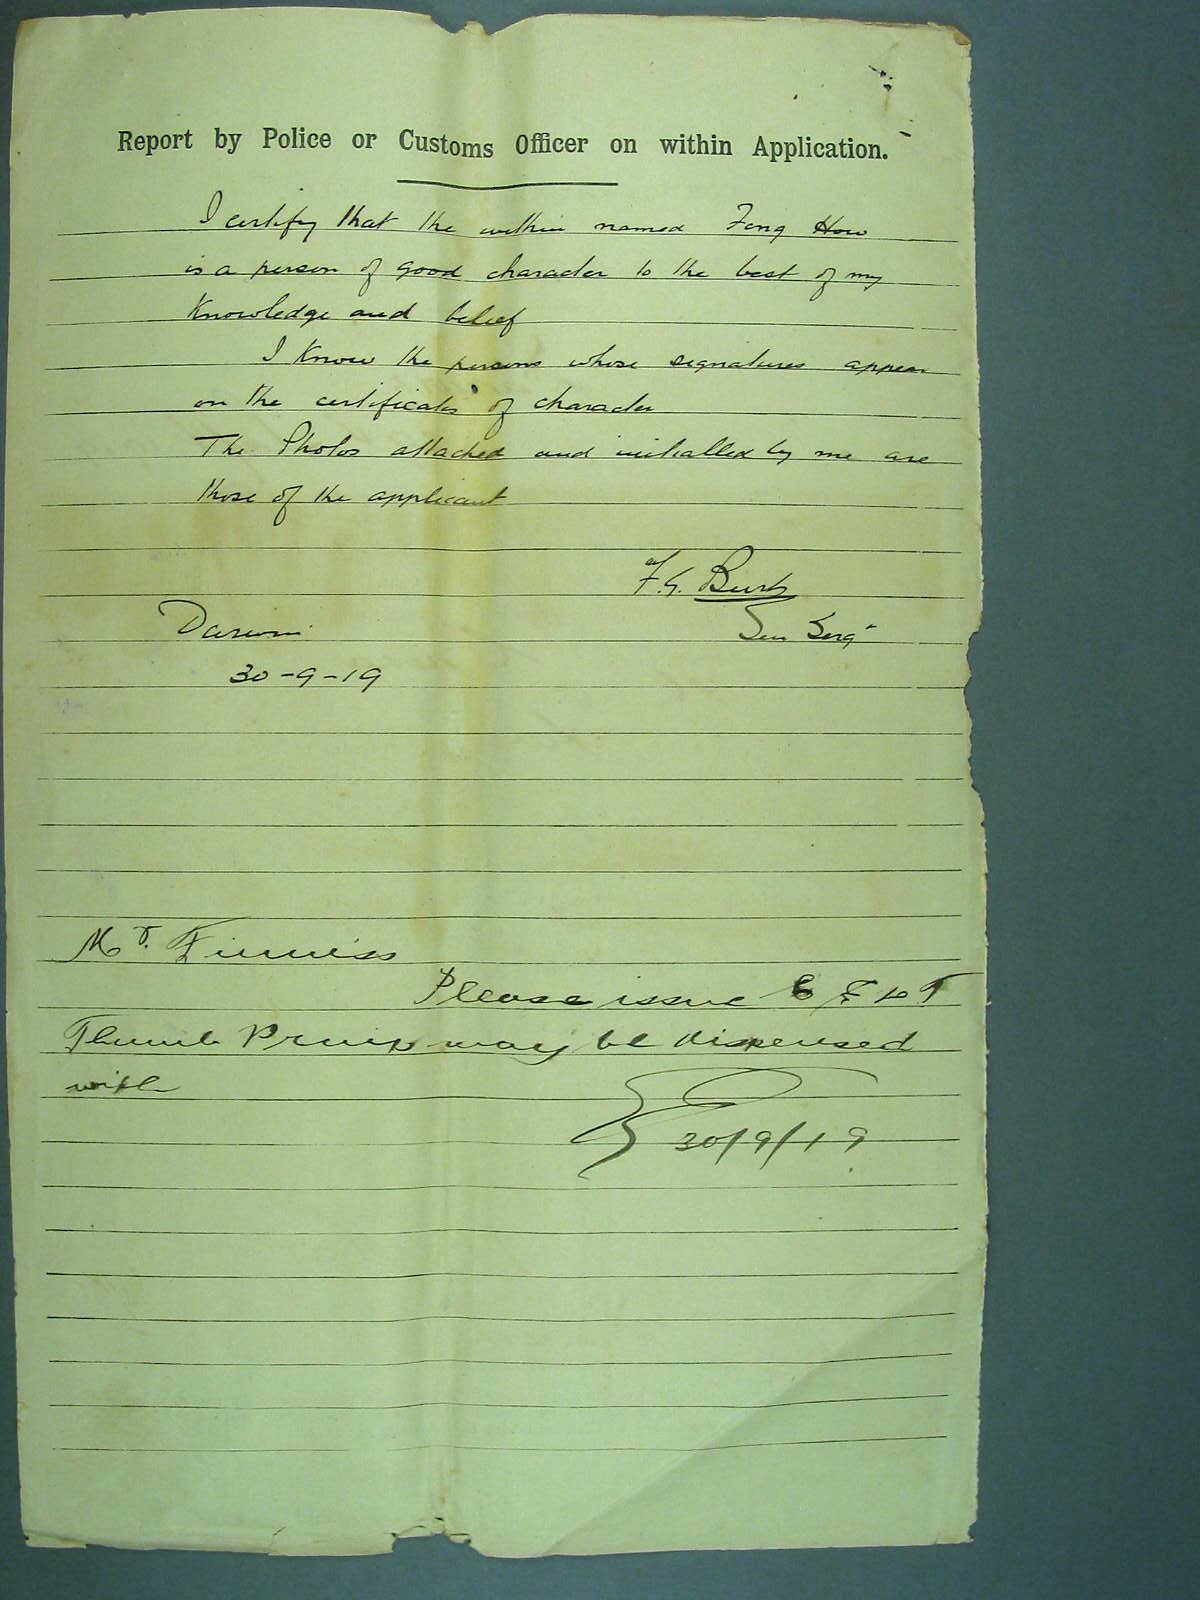 Report by Police or Customs Officer on within Application.
I certify that the within named Fong How
is a person of good character to the best of my
Knowledge and belief
I Know the persons whose signatures appear
on the certificates of character
The Photos attached and initialled by me are
those of the applicant
F.G. Burt
Sen Sergt
Darwin
30-9-19
Mr. Finniss
Please issue C E D T
Thumb Prints may be dispensed
with
30/9/19